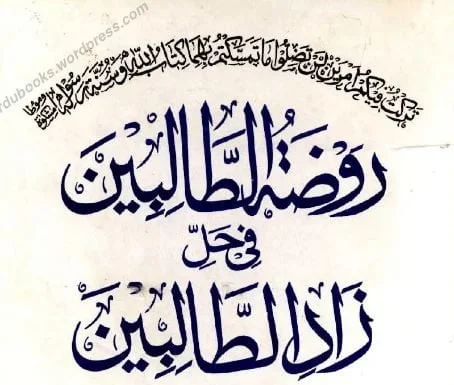 rdubooks.wordpress.com
تركت فيكم امرين لن تضلوا ما تمسكتم بهما كتاب الله وسنة رسوله
رَوْضَةُ الطَّالِبِيْنَ
فِيْ حَلِّ
زَادِ الطَّالِبِيْنَ